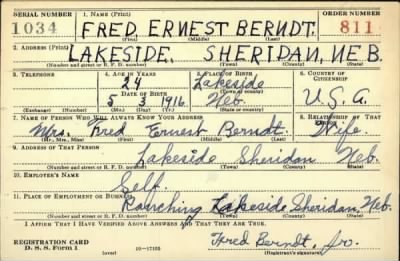 SERIAL NUMBER 1. NAME (Print) ORDER NUMBER
1034 FRED ERNEST BERNDT. 811
(First) (Middle) (Last)
2. ADDRESS (Print)
LAKESIDE. SHERIDAN, NEB.
(Number and street or R. F. D. number) (Town) (County) (State)
3. TELEPHONE 4. AGE IN YEARS 5. PLACE OF BIRTH 6. COUNTRY OF CITIZENSHIP
24 Lakeside
DATE OF BIRTH (Town or county)
5 3 1916 Neb. U.S.A.
(Exchange) (Number) (Mo.) (Day) (Yr.) (State or country)
7. NAME OF PERSON WHO WILL ALWAYS KNOW YOUR ADDRESS 8. RELATIONSHIP OF THAT PERSON
Mrs. Fred Ernest Berndt. Wife.
(Mr., Mrs., Miss) (First) (Middle) (Last)
9. ADDRESS OF THAT PERSON
Lakeside Sheridan Neb.
(Number and street or R. F. D. number) (Town) (County) (State)
10. EMPLOYER'S NAME
Self.
11. PLACE OF EMPLOYMENT OR BUSINESS
Ranching Lakeside, Sheridan, Neb.
(Number and street or R. F. D. number) (Town) (County) (State)
I AFFIRM THAT I HAVE VERIFIED ABOVE ANSWERS AND THAT THEY ARE TRUE.
REGISTRATION CARD
D. S. S. Form 1 (over) 16—17105 Fred Berndt, Jr.
(Registrant's signature)